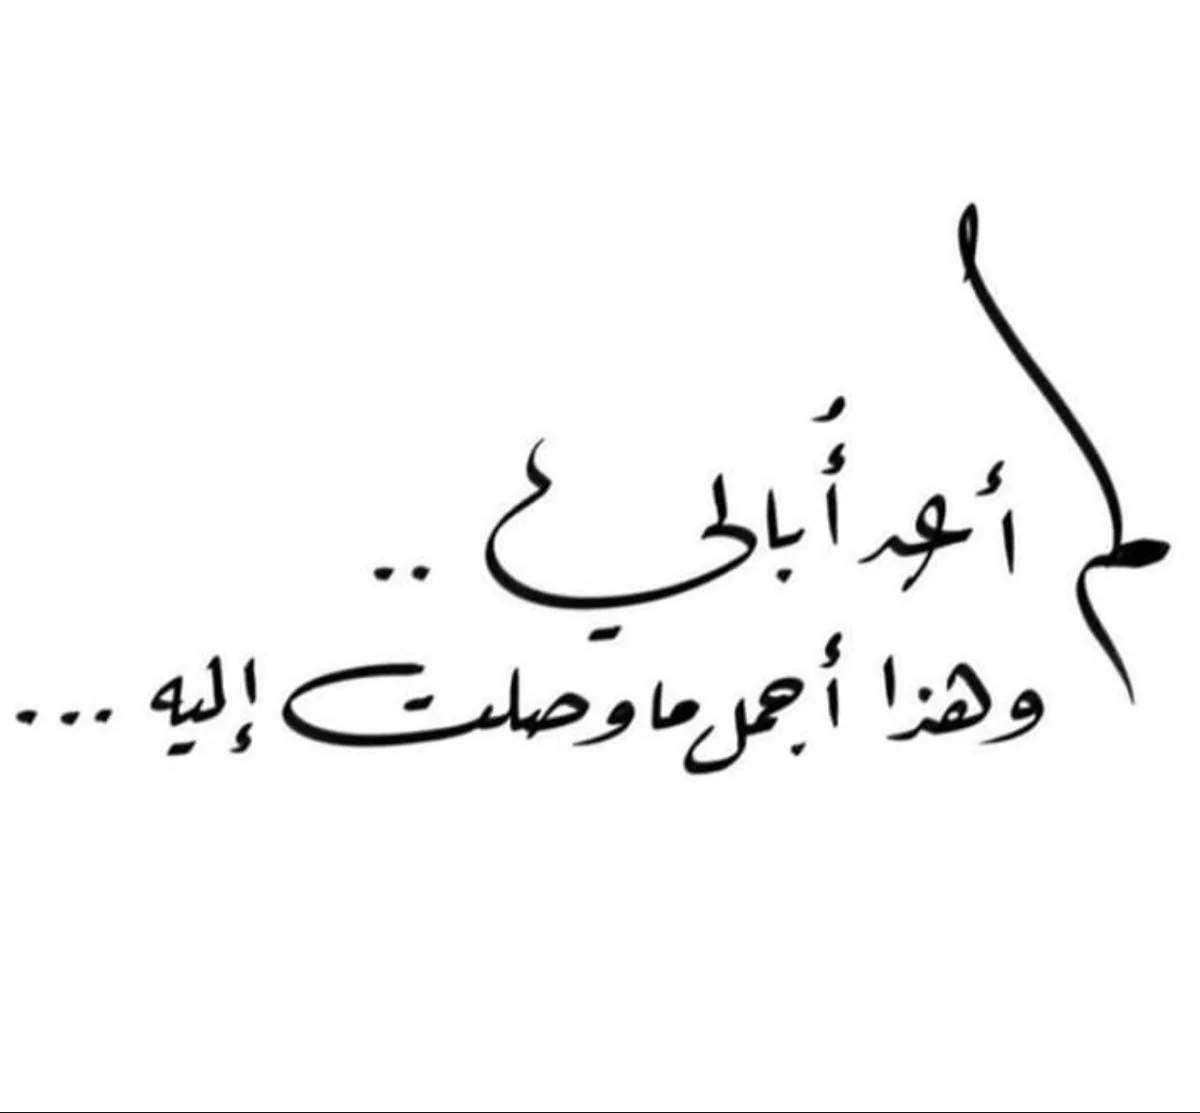 لم أعد أُبالي ..
وهذا أجمل ما وصلت إليه ...